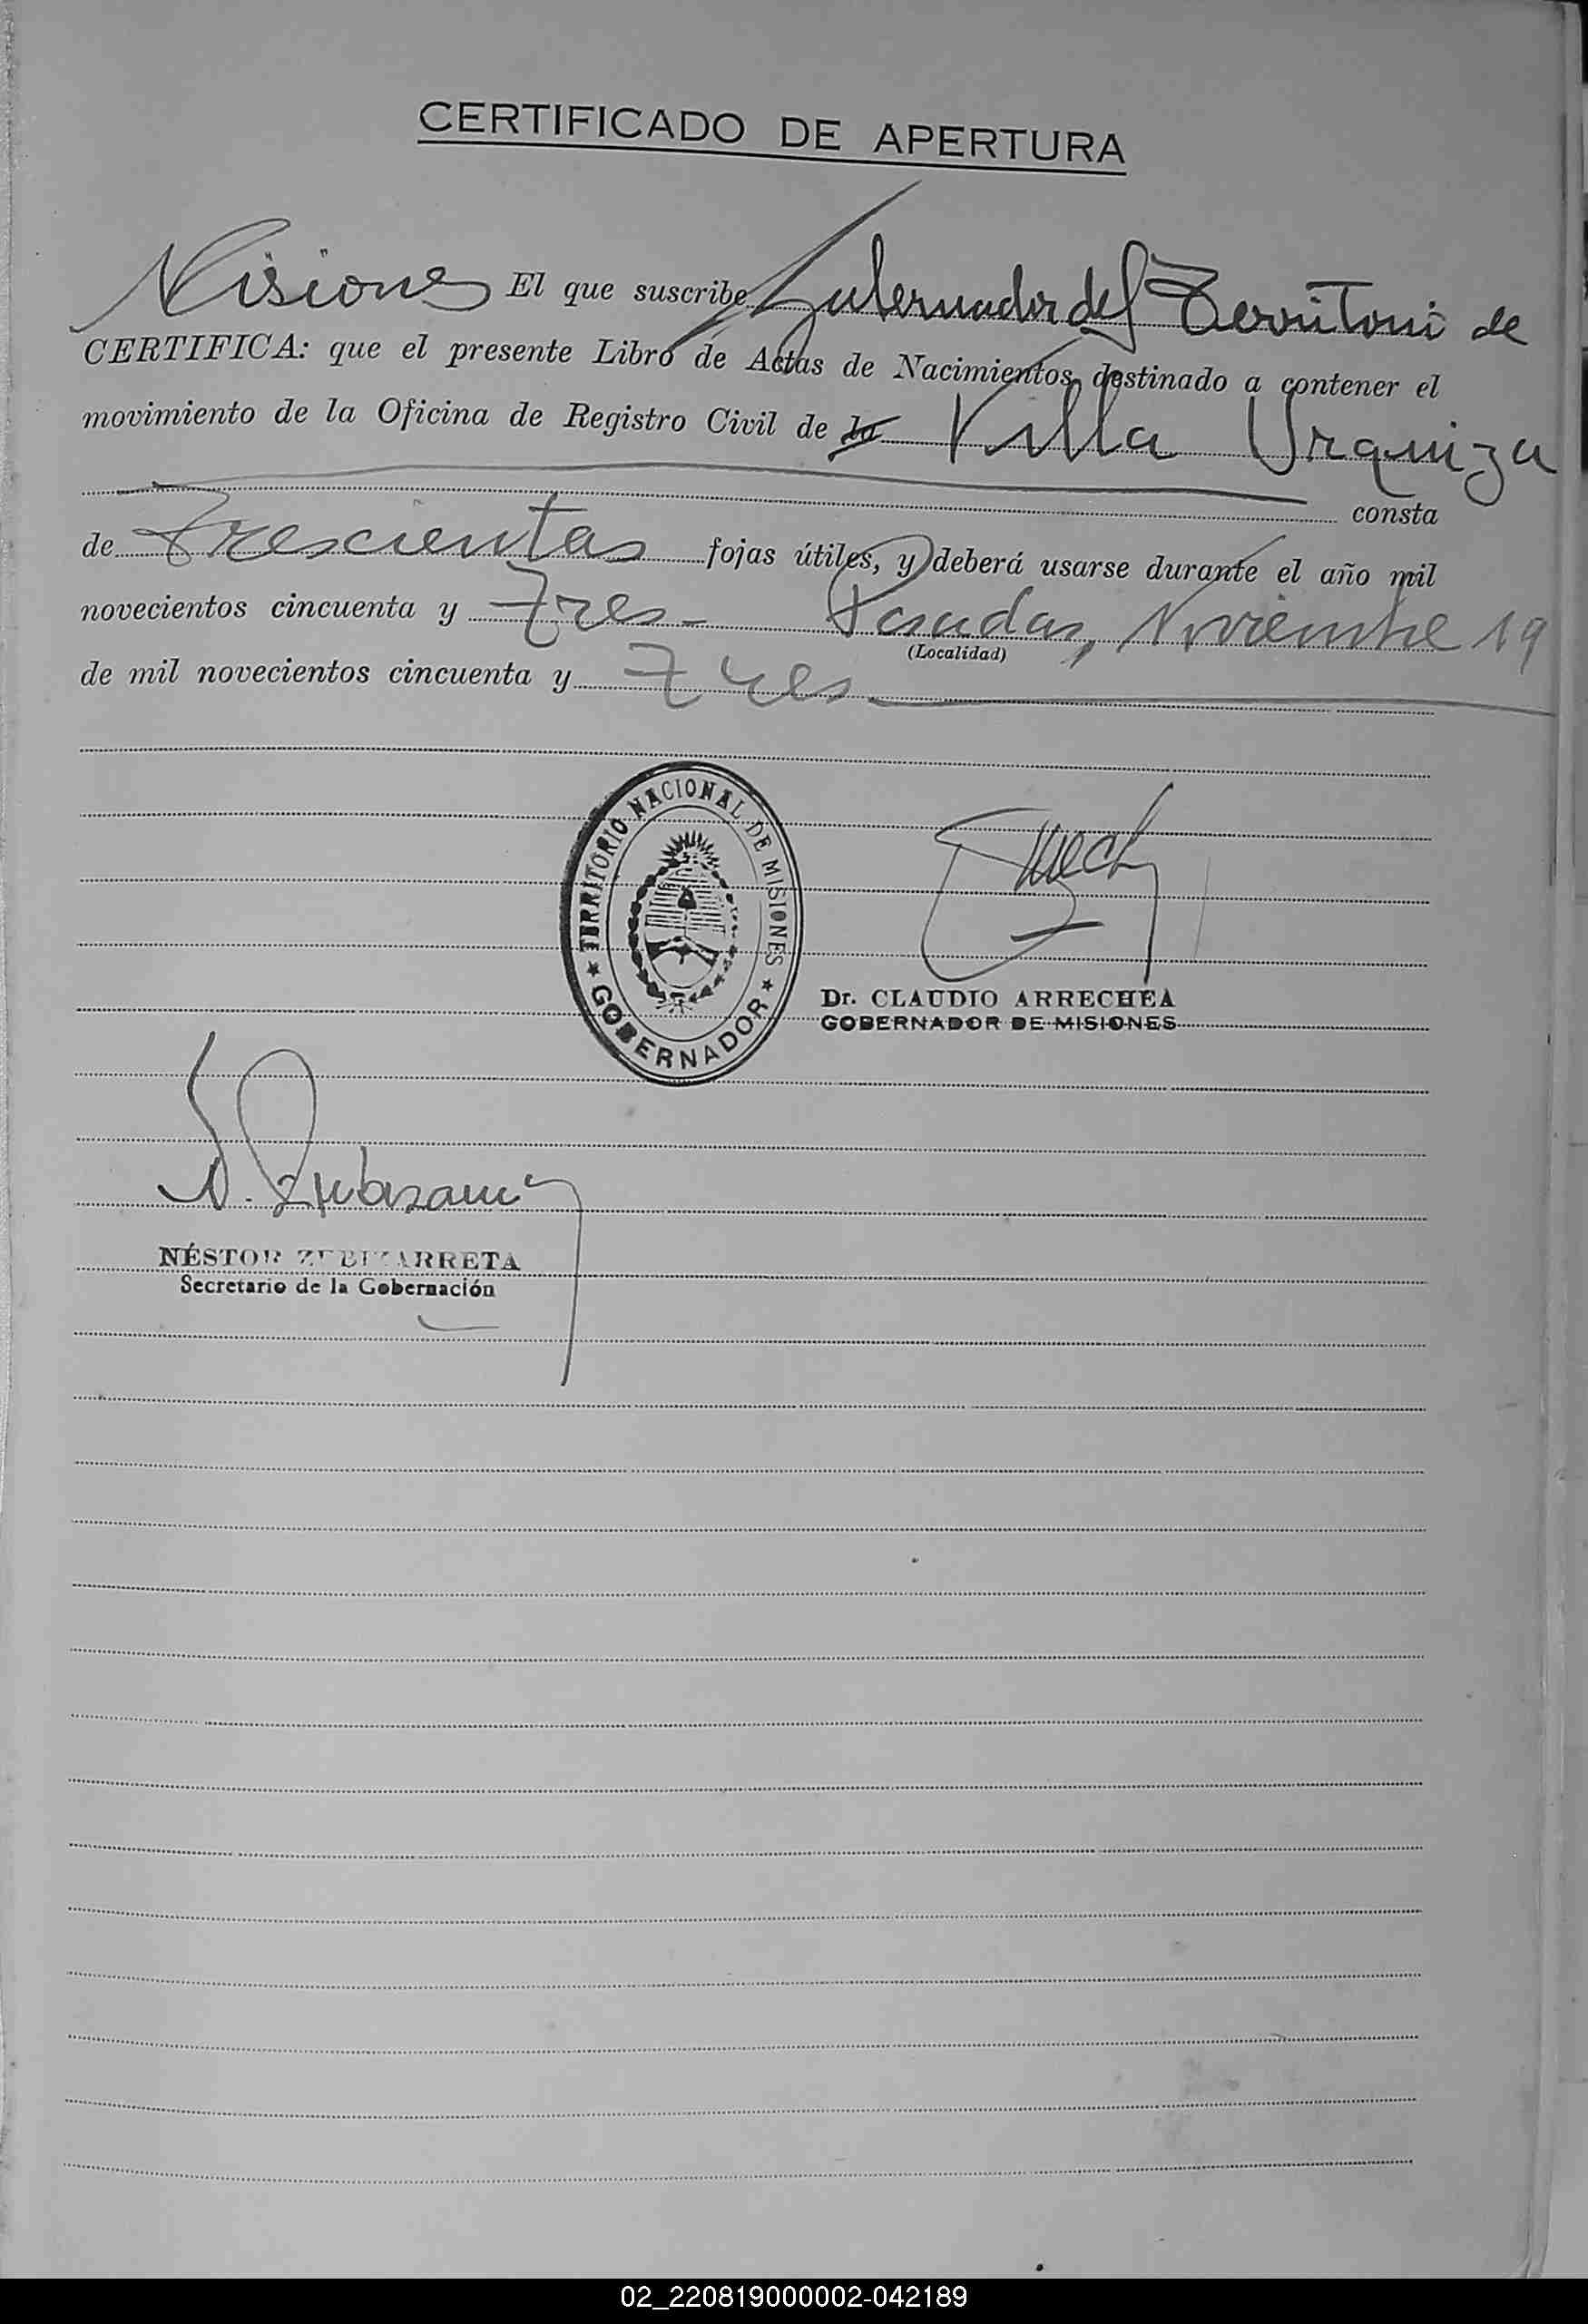 CERTIFICADO DE APERTURA
Misiones El que suscribe Gobernador del Territorio de
CERTIFICA: que el presente Libro de Actas de Nacimientos, destinado a contener el
movimiento de la Oficina de Registro Civil de la Villa Urquiza
consta
de Trescientas fojas útiles, y deberá usarse durante el año mil
novecientos cincuenta y tres- Posadas, Noviembre 19
(Localidad)
de mil novecientos cincuenta y tres
TERRITORIO NACIONAL DE MISIONES
GOBERNADOR
Dr. CLAUDIO ARRECHEA
GOBERNADOR DE MISIONES
NÉSTOR ZUBIZARRETA
Secretario de la Gobernación
02_220819000002-042189